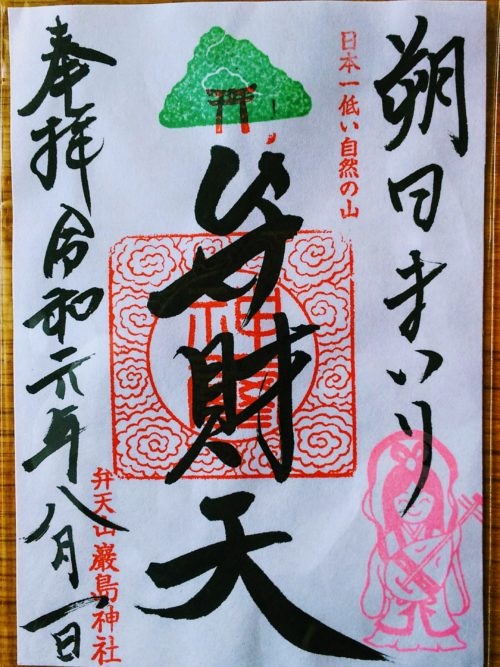 朔日まいり
日本一低い自然の山
弁財天
弁天山厳島神社
奉拝 令和元年八月一日